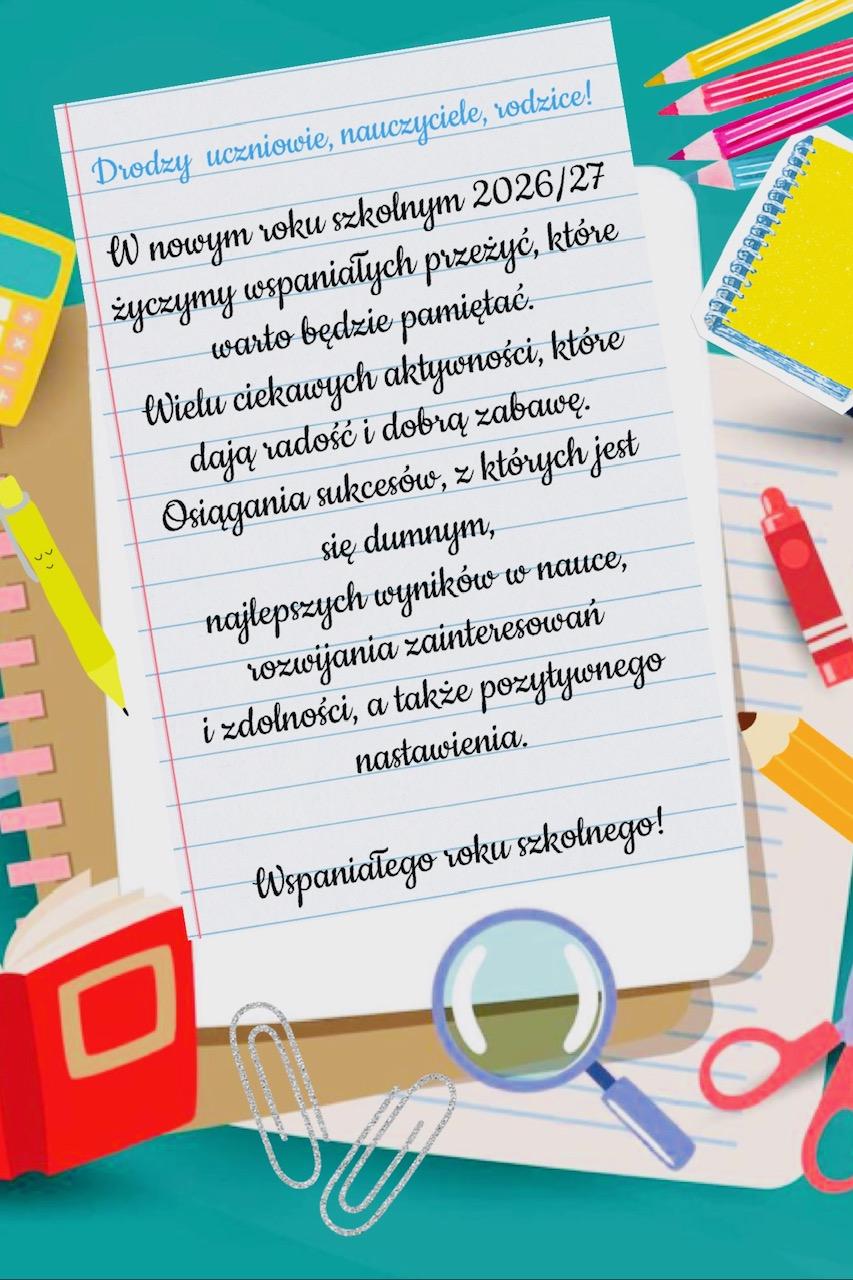 Drodzy uczniowie, nauczyciele, rodzice!
W nowym roku szkolnym 2026/27
życzymy wspaniałych przeżyć, które
warto będzie pamiętać.
Wielu ciekawych aktywności, które
dają radość i dobrą zabawę.
Osiągania sukcesów, z których jest
się dumnym,
najlepszych wyników w nauce,
rozwijania zainteresowań
i zdolności, a także pozytywnego
nastawienia.
Wspaniałego roku szkolnego!